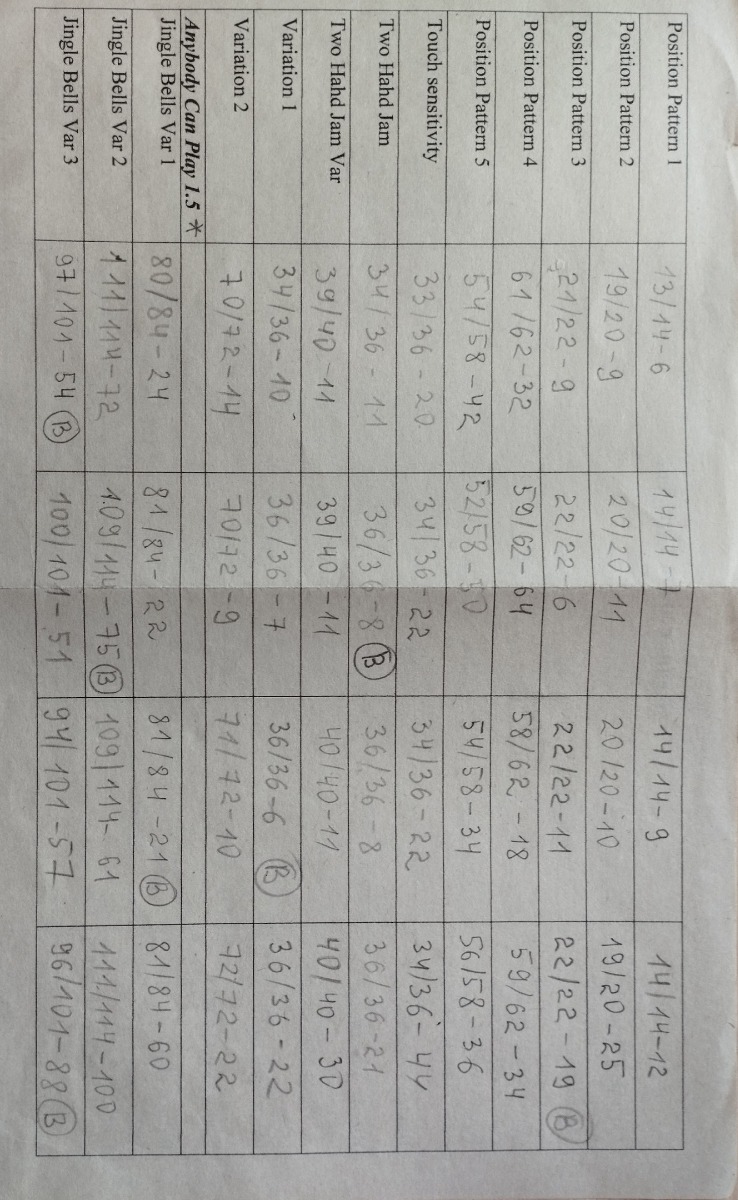 Position Pattern 1 13/14-6 14/14-7 14/14-9 14/14-12
Position Pattern 2 19/20-9 20/20-11 20/20-10 19/20-25
Position Pattern 3 21/22-9 22/22-6 22/22-11 22/22-19 B
Position Pattern 4 61/62-32 59/62-64 58/62-18 59/62-34
Position Pattern 5 54/58-42 52/58-50 54/58-34 56/58-36
Touch sensitivity 33/36-20 34/36-22 34/36-22 34/36-44
Two Hahd Jam 34/36-11 36/36-8 B 36/36-8 36/36-21
Two Hahd Jam Var 39/40-11 39/40-11 40/40-11 40/40-30
Variation 1 34/36-10 36/36-7 36/36-6 B 36/36-22
Variation 2 70/72-14 70/72-9 71/72-10 72/72-22
Anybody Can Play 1.5 *
Jingle Bells Var 1 80/84-24 81/84-22 81/84-21 B 81/84-60
Jingle Bells Var 2 111/114-72 109/114-75 B 109/114-61 111/114-100
Jingle Bells Var 3 97/101-54 B 100/101-51 94/101-57 96/101-88 B